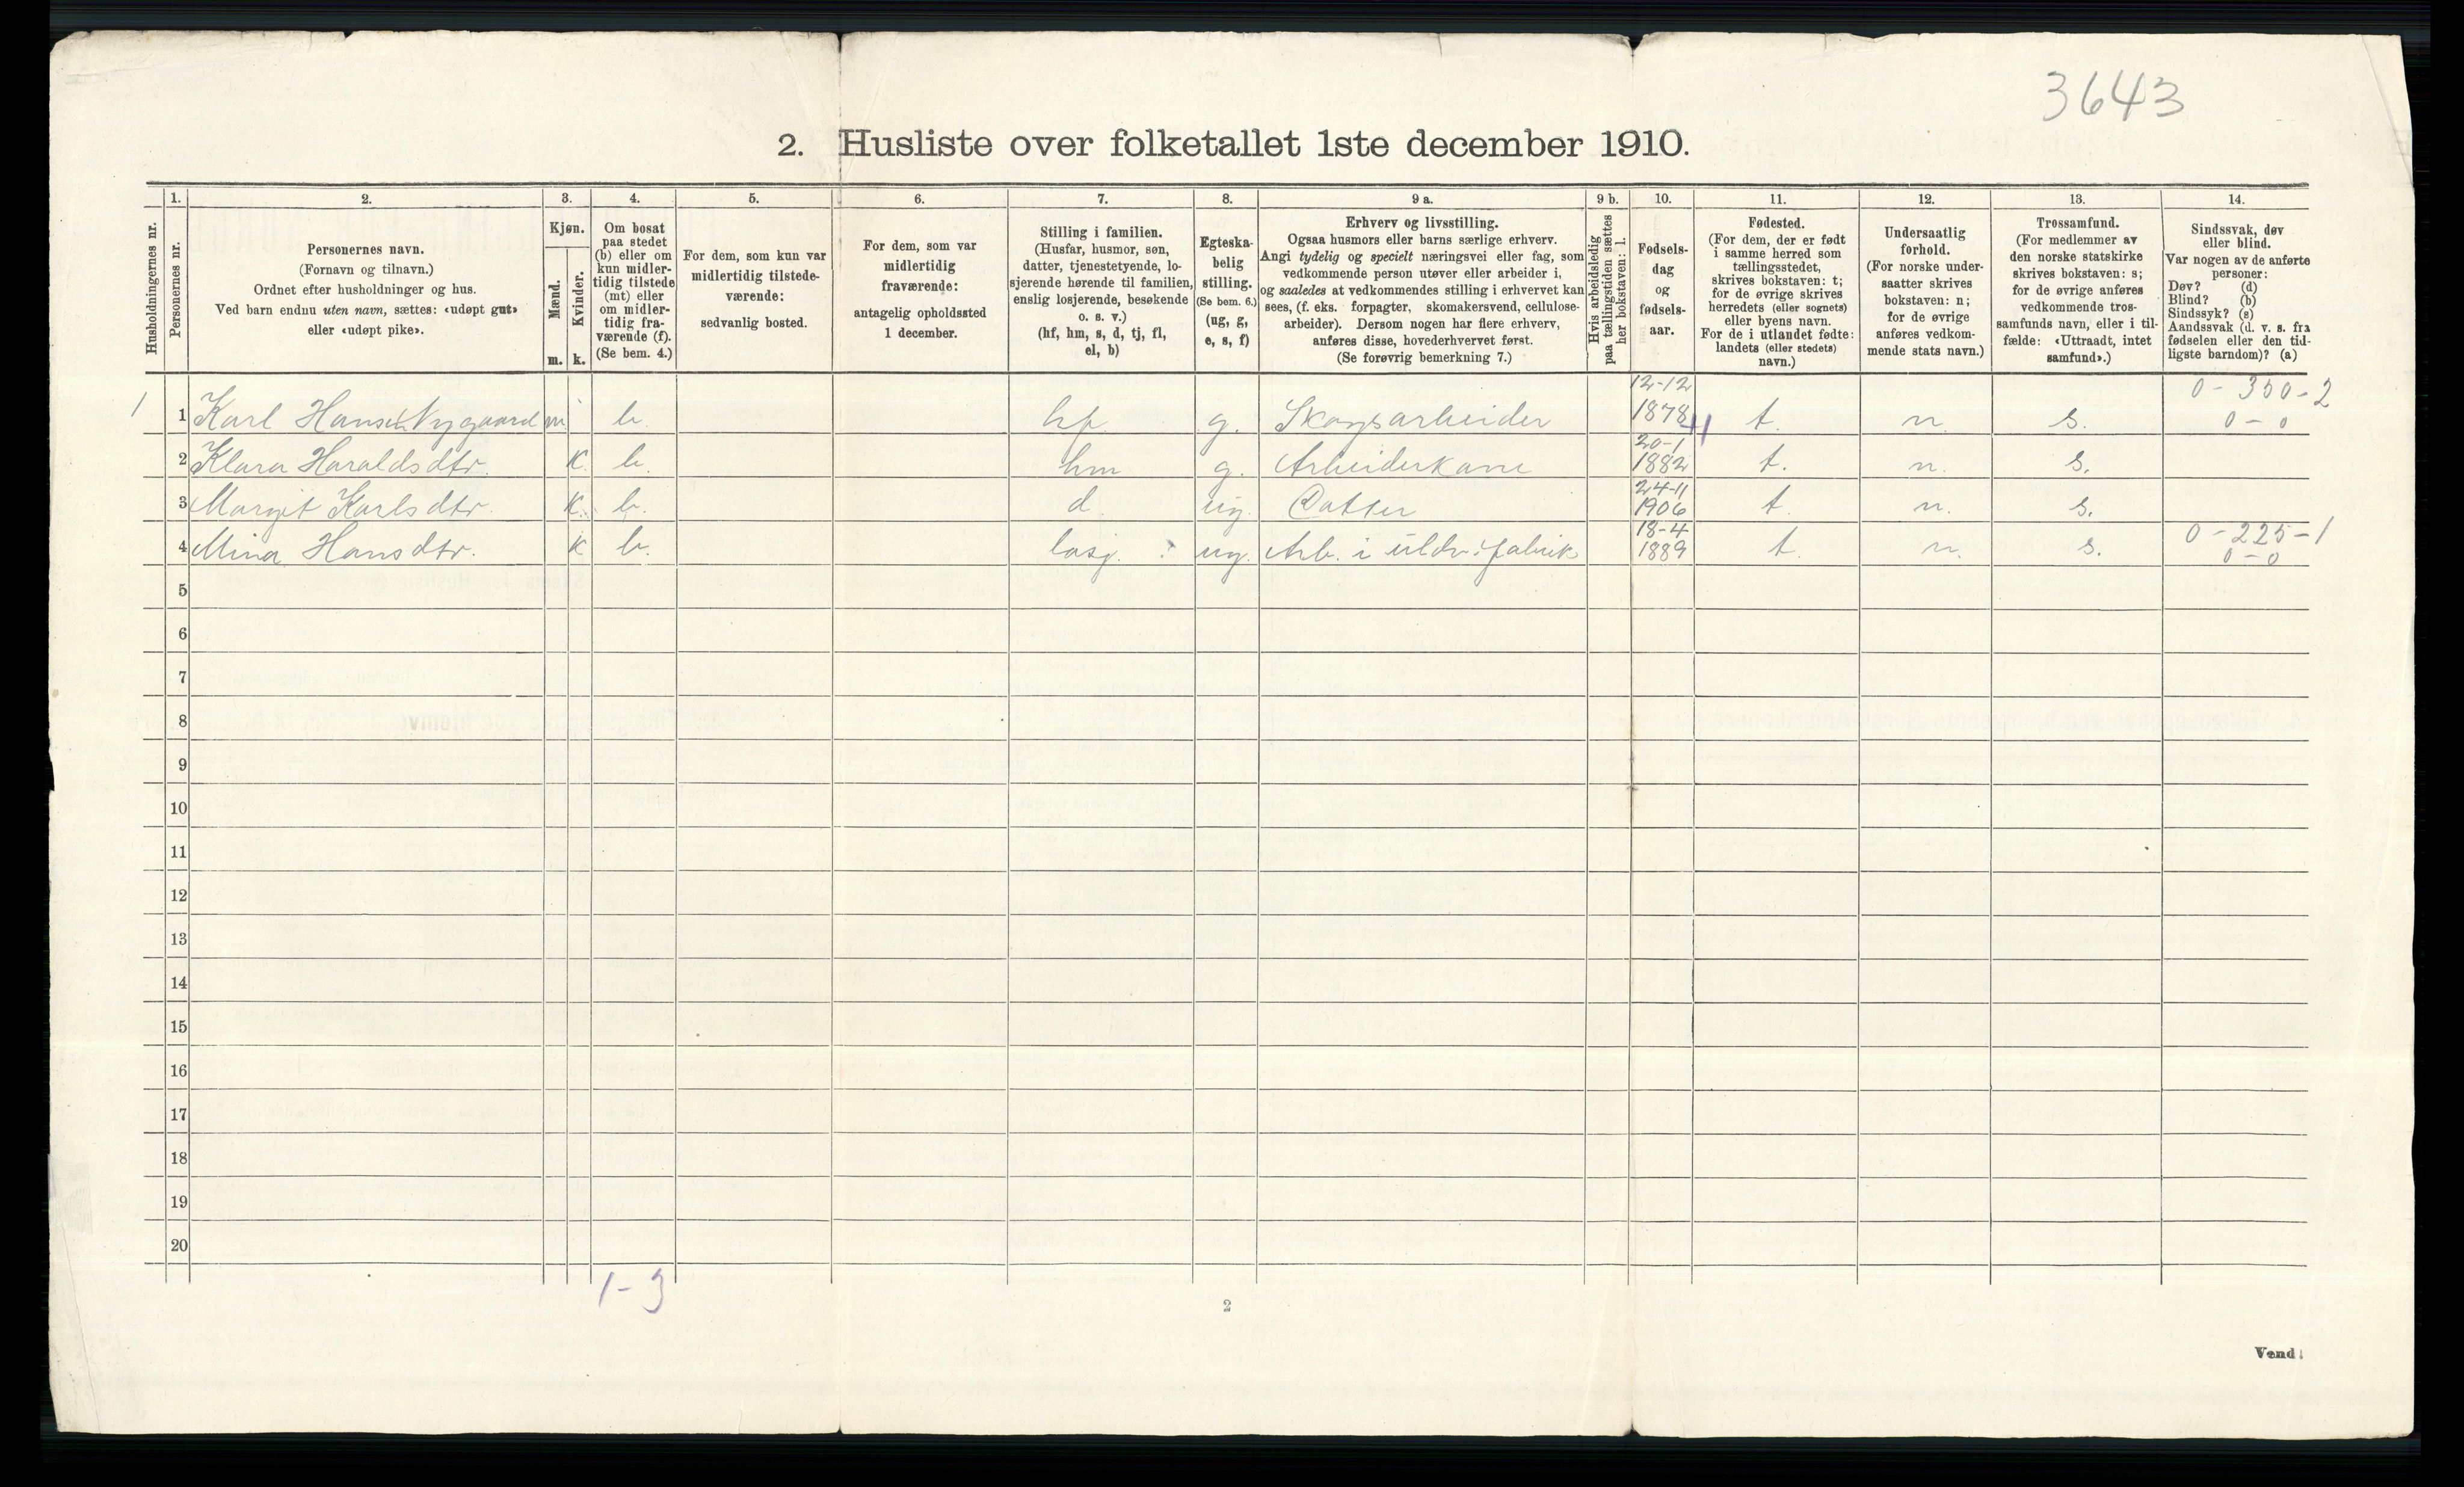 3643
2. Husliste over folketallet 1ste december 1910.
Husholdningernes nr.
1.
Personernes nr.
2.
Personernes navn.
(Fornavn og tilnavn.)
Ordnet efter husholdninger og hus.
Ved barn endnu uten navn, sættes: «udøpt gut»
eller «udøpt pike».
3.
Kjøn.
Mænd.
m.
Kvinder.
k.
4.
Om bosat
paa stedet
(b) eller om
kun midler-
tidig tilstede
(mt) eller
om midler-
tidig fra-
værende (f).
(Se bem. 4.)
5.
For dem, som kun var
midlertidig tilstede-
værende:
sedvanlig bosted.
6.
For dem, som var
midlertidig
fraværende:
antagelig opholdssted
1 december.
7.
Stilling i familien.
(Husfar, husmor, søn,
datter, tjenestetyende, lo-
sjerende hørende til familien,
enslig losjerende, besøkende
o. s. v.)
(hf, hm, s, d, tj, fl,
el, b)
8.
Egteska-
belig
stilling.
(Se bem. 6.)
(ug, g,
e, s, f)
9 a.
Erhverv og livsstilling.
Ogsaa husmors eller barns særlige erhverv.
Angi tydelig og specielt næringsvei eller fag, som
vedkommende person utøver eller arbeider i,
og saaledes at vedkommendes stilling i erhvervet kan
sees, (f. eks. forpagter, skomakersvend, cellulose-
arbeider). Dersom nogen har flere erhverv,
anføres disse, hovederhvervet først.
(Se forøvrig bemerkning 7.)
9 b.
Hvis arbeidsledig
paa tællingstiden sættes
her bokstaven: l.
10.
Fødsels-
dag
og
fødsels-
aar.
11.
Fødested.
(For dem, der er født
i samme herred som
tællingsstedet,
skrives bokstaven: t;
for de øvrige skrives
herredets (eller sognets)
eller byens navn.
For de i utlandet fødte:
landets (eller stedets)
navn.)
12.
Undersaatlig
forhold.
(For norske under-
saatter skrives
bokstaven: n;
for de øvrige
anføres vedkom-
mende stats navn.)
13.
Trossamfund.
(For medlemmer av
den norske statskirke
skrives bokstaven: s;
for de øvrige anføres
vedkommende tros-
samfunds navn, eller i til-
fælde: «Uttraadt, intet
samfund».)
14.
Sindssvak, døv
eller blind.
Var nogen av de anførte
personer:
Døv? (d)
Blind? (b)
Sindssyk? (s)
Aandssvak (d. v. s. fra
fødselen eller den tid-
ligste barndom)? (a)
12-12 0-350-2
1 1 Karl Hansen Nygaard m b. hf g. Skogsarbeider 1878 t. n. s. 0-0
20-1
2 Klara Haraldsdtr. k. b. hm g. Arbeiderkone 1882 t. n. s.
24-11
3 Margit Karlsdtr. k. b. d. ug. Datter 1906 t. n. s.
18-4 0-225-1
4 Mina Hansdtr. k b. losj. ug. Arb. i uldv. fabrik 1889 t. n. s. 0-0
5
6
7
8
9
10
11
12
13
14
15
16
17
18
19
20
1-3
2
Vend!